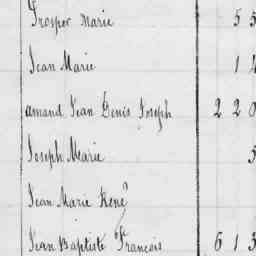 Prosper Marie 5 5
Jean Marie 1
Amand Jean Denis Joseph 2 2 0
Joseph Marie 5
Jean Marie René
Jean Baptiste Francois 6 1 3